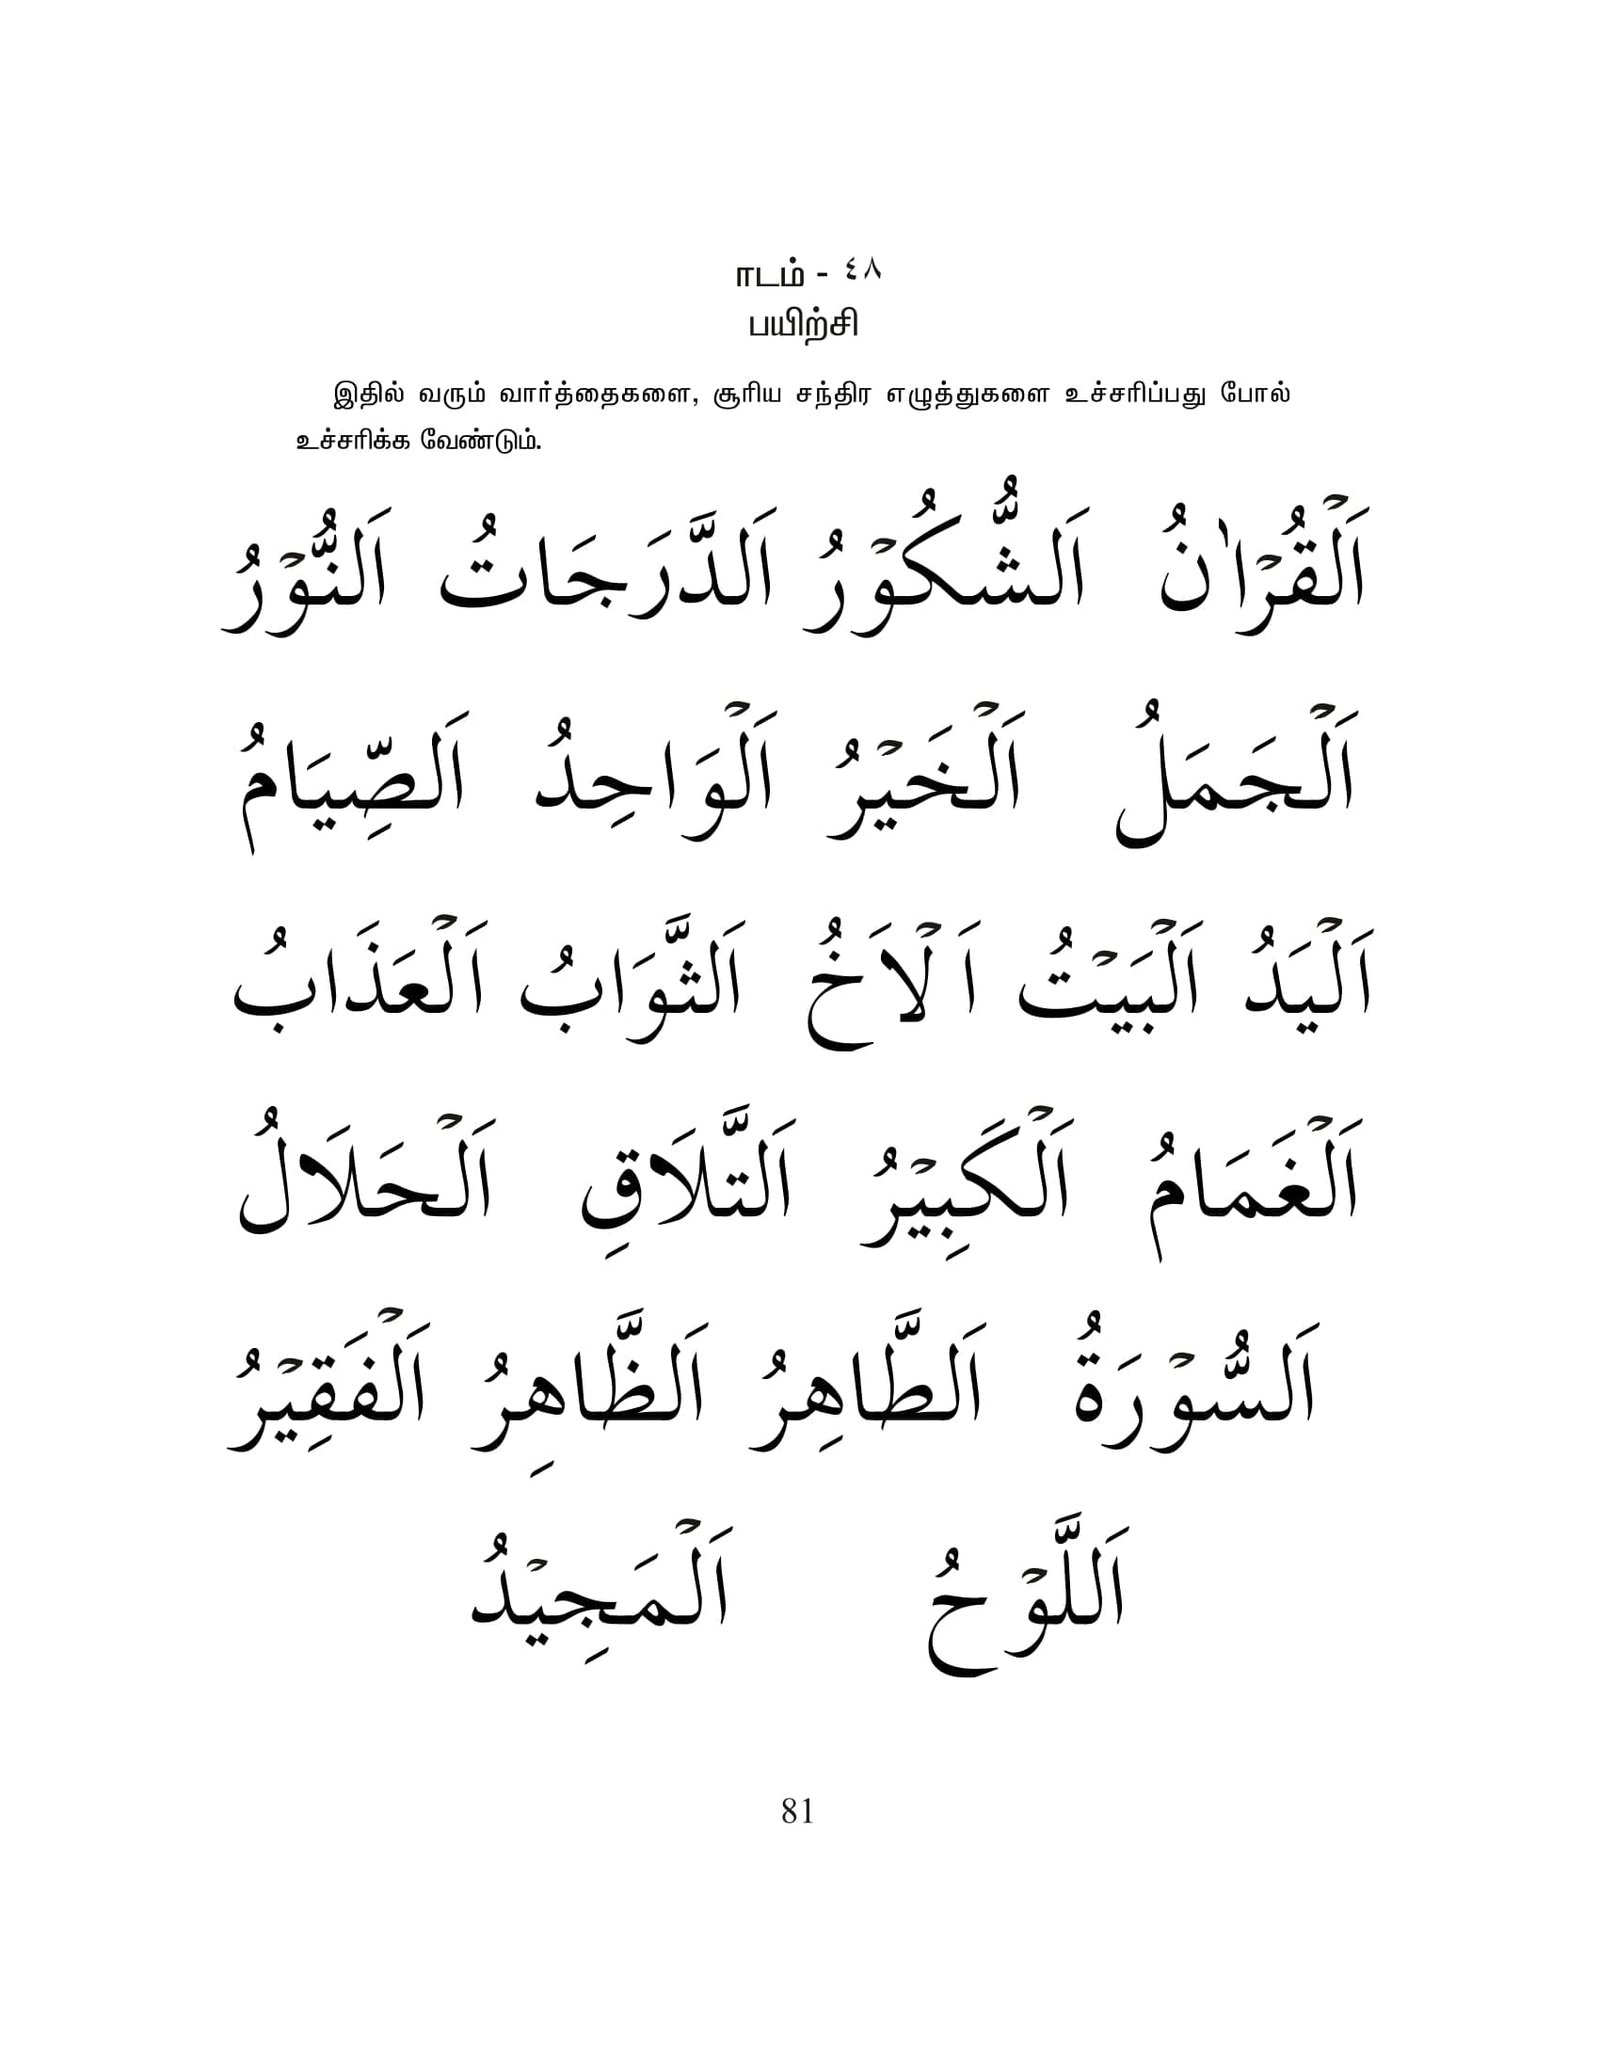 ாடம் - ٤٨
பயிற்சி
இதில் வரும் வார்த்தைகளை, சூரிய சந்திர எழுத்துகளை உச்சரிப்பது போல்
உச்சரிக்க வேண்டும்.
اَلْقُرْاٰنُ اَلشُّكُوْرُ اَلدَّرَجَاتُ اَلنُّوْرُ
اَلْجَمَلُ اَلْخَيْرُ اَلْوَاحِدُ اَلصِّيَامُ
اَلْيَدُ اَلْبَيْتُ اَلْاَخُ اَلثَّوَابُ اَلْعَذَابُ
اَلْغَمَامُ اَلْكَبِيْرُ اَلتَّلَاقِ اَلْحَلَالُ
اَلسُّوْرَةُ اَلطَّاهِرُ اَلظَّاهِرُ اَلْفَقِيْرُ
اَللَّوْحُ اَلْمَجِيْدُ
81